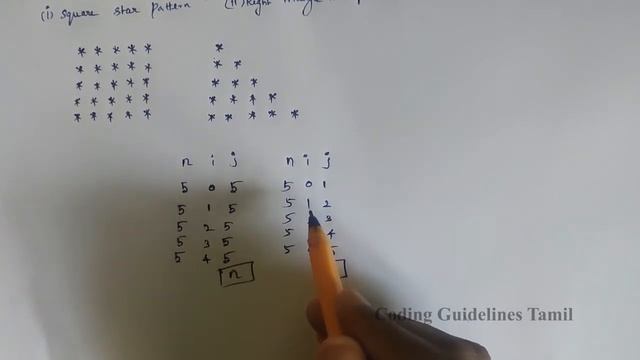 (i) square star pattern (ii) Right
* * * * * *
* * * * * * *
* * * * * * * *
* * * * * * * * *
* * * * * * * * * *
n i j n i j
5 0 5 5 0 1
5 1 5 5 1 2
5 2 5 5 3
5 3 5 5 4
5 4 5 5
n
Coding Guidelines Tamil